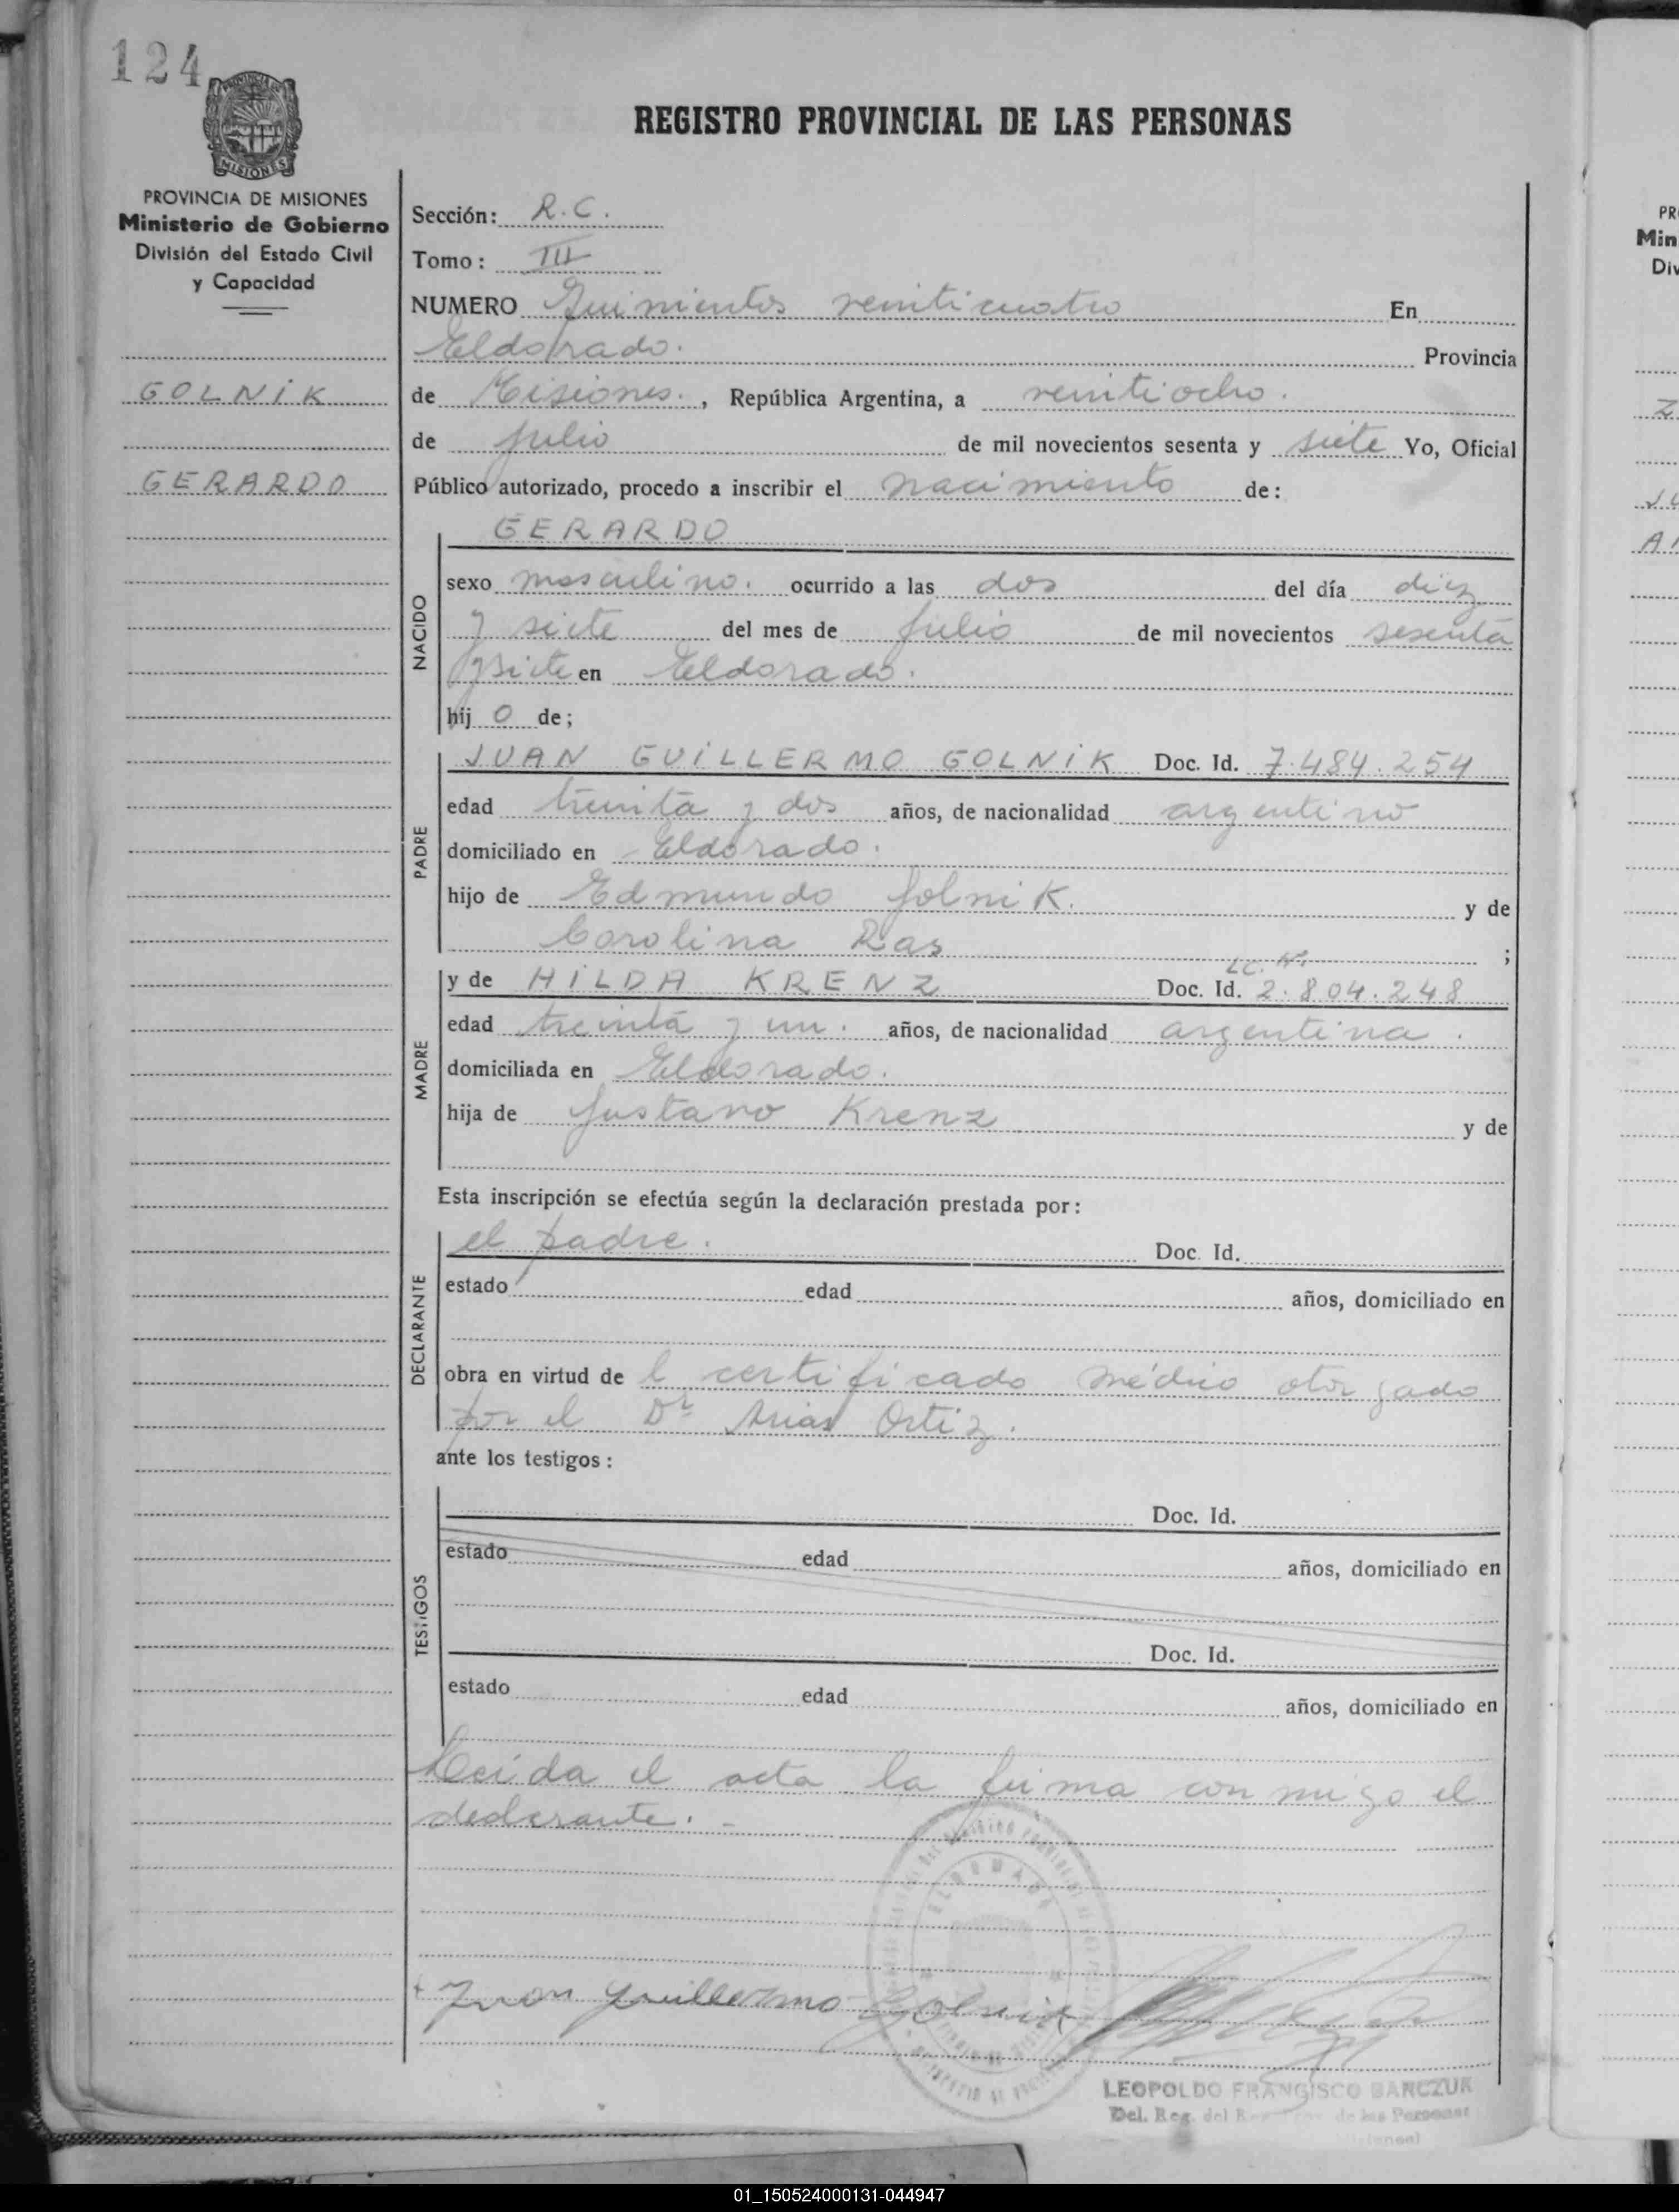 124
PROVINCIA DE
MISIONES
PROVINCIA DE MISIONES
Ministerio de Gobierno
División del Estado Civil
y Capacidad
GOLNIK
GERARDO
REGISTRO PROVINCIAL DE LAS PERSONAS
Sección: R.C.
Tomo: III
NUMERO Quinientos veinticuatro En
Eldorado. Provincia
de Misiones. , República Argentina, a veintiocho.
de julio de mil novecientos sesenta y siete Yo, Oficial
Público autorizado, procedo a inscribir el nacimiento de:
GERARDO
NACIDO
sexo masculino. ocurrido a las dos del día diez
y siete del mes de julio de mil novecientos sesenta
y siete en Eldorado.
hij o de;
PADRE
JUAN GUILLERMO GOLNIK Doc. Id. 7.484.254
edad treinta y dos años, de nacionalidad argentino
domiciliado en Eldorado.
hijo de Edmundo Golnik. y de
Carolina Ras ;
MADRE
LC. Nº
y de HILDA KRENZ Doc. Id. 2.804.248
edad treinta y un. años, de nacionalidad argentina.
domiciliada en Eldorado.
hija de Gustavo Krenz y de
Esta inscripción se efectúa según la declaración prestada por:
DECLARANTE
el padre. Doc. Id.
estado edad años, domiciliado en
obra en virtud de l certificado médico otorgado
por el Dr Arias Ortiz.
ante los testigos:
TESTIGOS
Doc. Id.
estado edad años, domiciliado en
Doc. Id.
estado edad años, domiciliado en
Leída el acta la firma conmigo el
declarante. -
ELDORADO
Juan Guillermo Golnik
LEOPOLDO FRANCISCO BARCZUK
Del. Reg. del Reg. de las Personas
PR
Min
Div
01_150524000131-044947